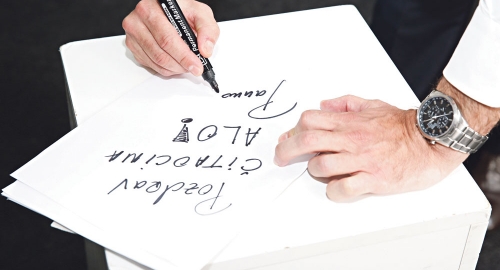 Pozdrav
ČITAOCIMA
ALO!
Permanent Marker